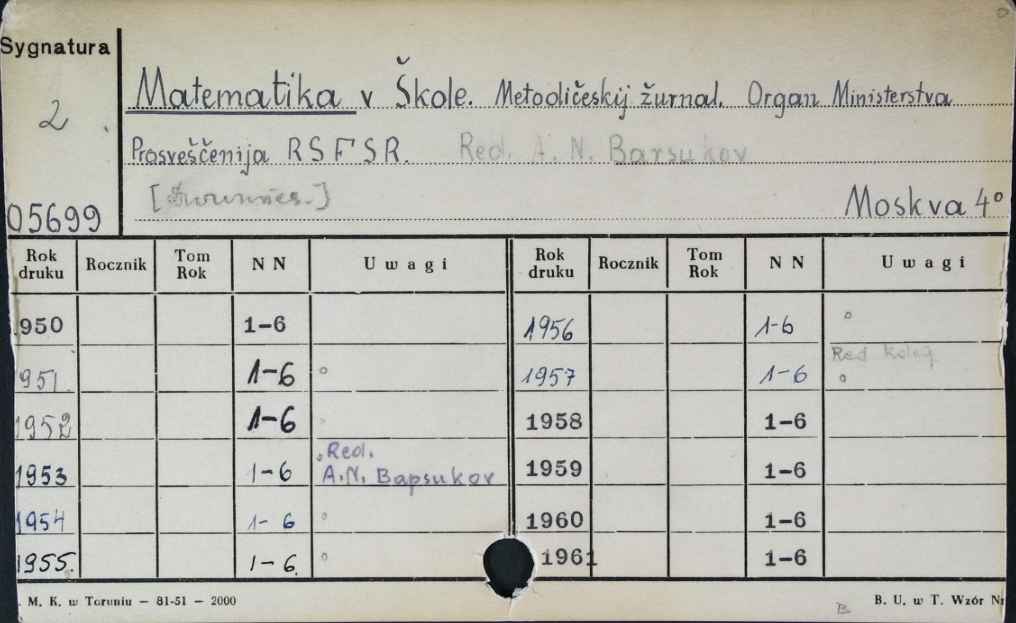 Sygnatura
2
Matematika v Škole. Metodičeskij žurnal. Organ Ministerstva
Prosveščenija RSFSR. Red. A. N. Barsukov
Moskva 4°
05699
Rok druku Rocznik Tom Rok NN Uwagi Rok druku Rocznik Tom Rok NN Uwagi
950 1-6 1956 1-6 °
1951. 1-6 ° 1957 1-6 Red koleg °
1952 1-6 1958 1-6
1953 1-6 Red. A.N. Bapsukov 1959 1-6
1954 1-6 ° 1960 1-6
1955. 1-6. ° 1961 1-6
. M. K. w Toruniu — 81-51 — 2000
B
B. U. w T. Wzór Nr